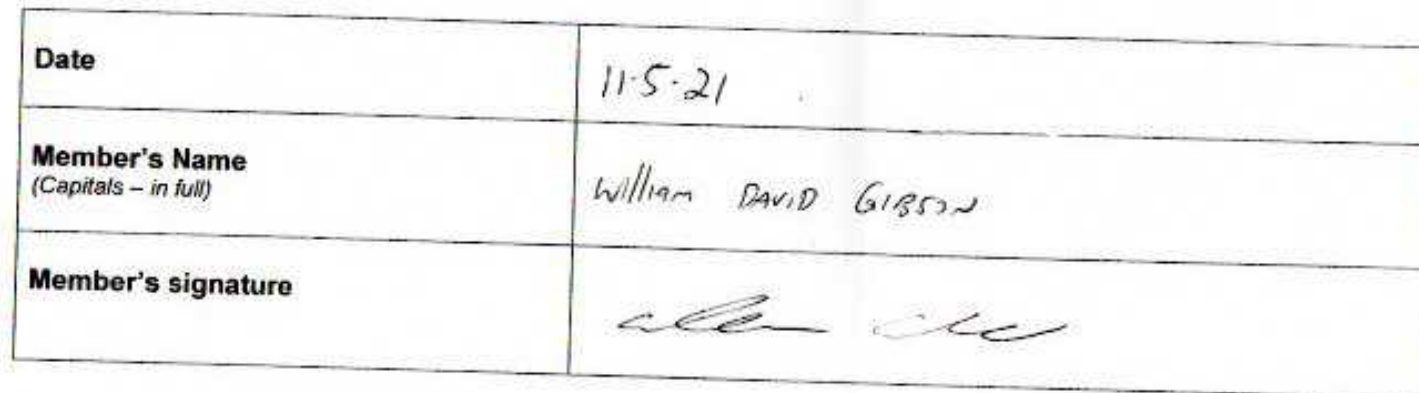 Date
11-5-21
Member's Name
(Capitals – in full)
William DAVID GIBSON
Member's signature